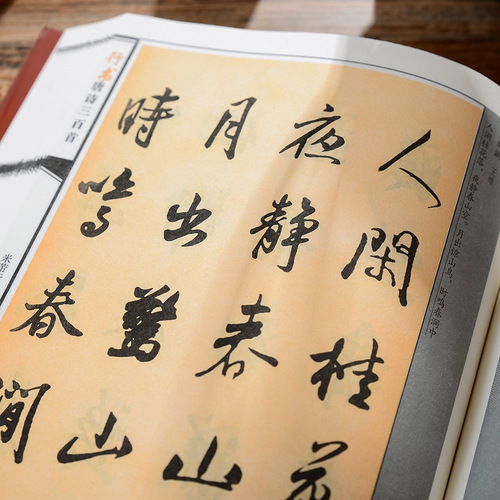 行书唐诗三百首
米芾
王维
人闲桂花落，夜静春山空。月出惊山鸟，时鸣春涧中
人閑桂花
夜靜春山
月出驚山
時鳴春澗